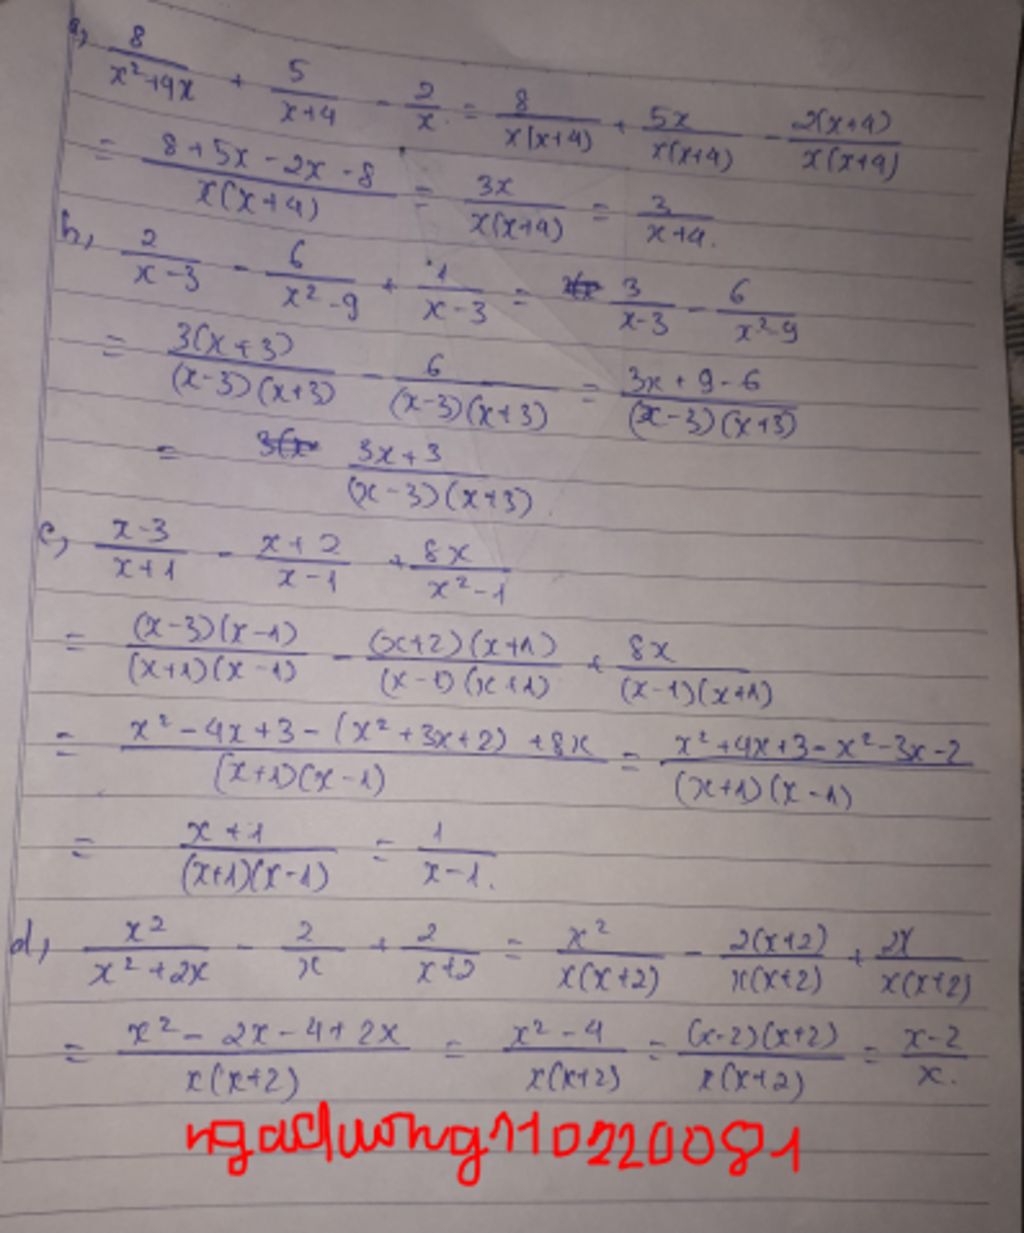 a, 8/(x²+4x) + 5/(x+4) - 2/x = 8/(x(x+4)) + 5x/(x(x+4)) - 2(x+4)/(x(x+4))
= (8+5x-2x-8)/(x(x+4)) = 3x/(x(x+4)) = 3/(x+4).
b, 2/(x-3) - 6/(x²-9) + 1/(x-3) = 3/(x-3) - 6/(x²-9)
= 3(x+3)/((x-3)(x+3)) - 6/((x-3)(x+3)) = (3x+9-6)/((x-3)(x+3))
= (3x+3)/((x-3)(x+3)).
c, (x-3)/(x+1) - (x+2)/(x-1) + 8x/(x²-1)
= (x-3)(x-1)/((x+1)(x-1)) - (x+2)(x+1)/((x-1)(x+1)) + 8x/((x-1)(x+1))
= (x²-4x+3-(x²+3x+2)+8x)/((x+1)(x-1)) = (x²+4x+3-x²-3x-2)/((x+1)(x-1))
= (x+1)/((x+1)(x-1)) = 1/(x-1).
d, x²/(x²+2x) - 2/x + 2/(x+2) = x²/(x(x+2)) - 2(x+2)/(x(x+2)) + 2x/(x(x+2))
= (x²-2x-4+2x)/(x(x+2)) = (x²-4)/(x(x+2)) = (x-2)(x+2)/(x(x+2)) = (x-2)/x.